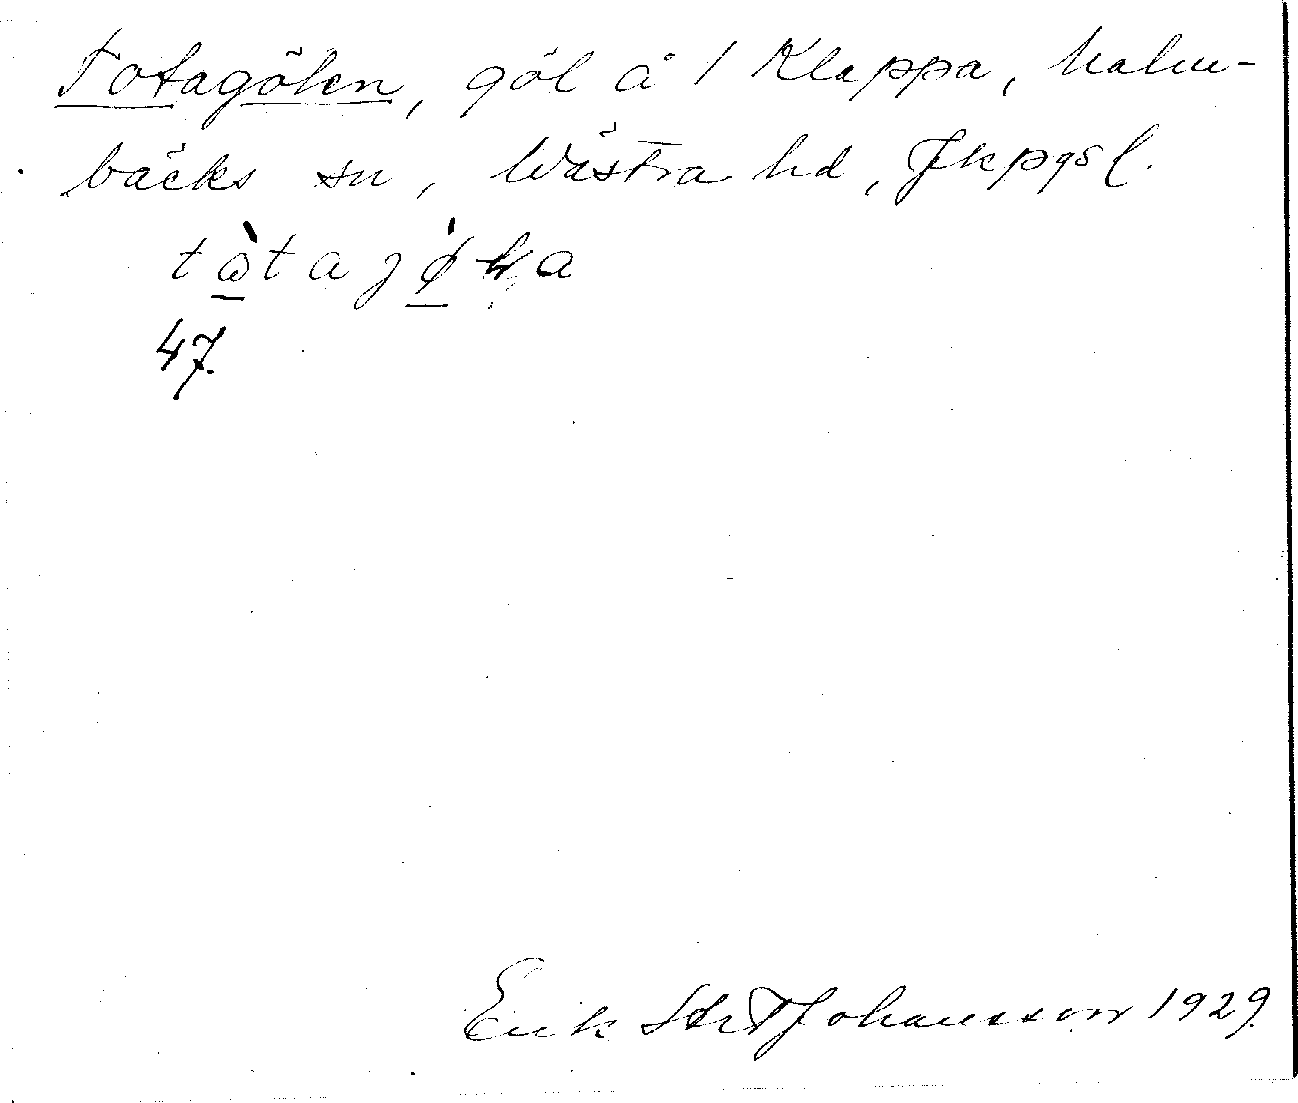 Totagölen, göl å 1 Klappa, Malm-
bäcks sn, Västra hd, Jkpgs l.
47.
Erik Johansson 1929.